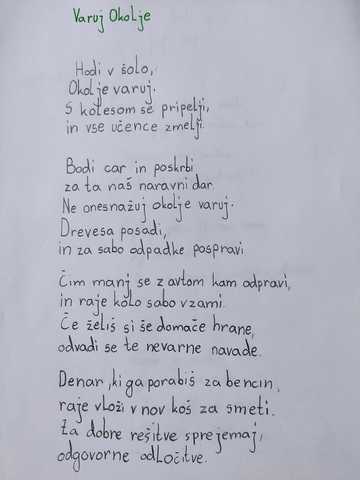 Varuj Okolje
Hodi v šolo,
Okolje varuj.
S kolesom se pripelji,
in vse učence zmelji.
Bodi car in poskrbi
za ta naš naravni dar.
Ne onesnažuj okolje varuj.
Drevesa posadi,
in za sabo odpadke pospravi
Čim manj se z avtom kam odpravi,
in raje kolo sabo vzami.
Če želiš si še domače hrane,
odvadi se te nevarne navade.
Denar, ki ga porabiš za bencin,
raje vloži v nov koš za smeti.
Za dobre rešitve sprejemaj,
odgovorne odločitve.